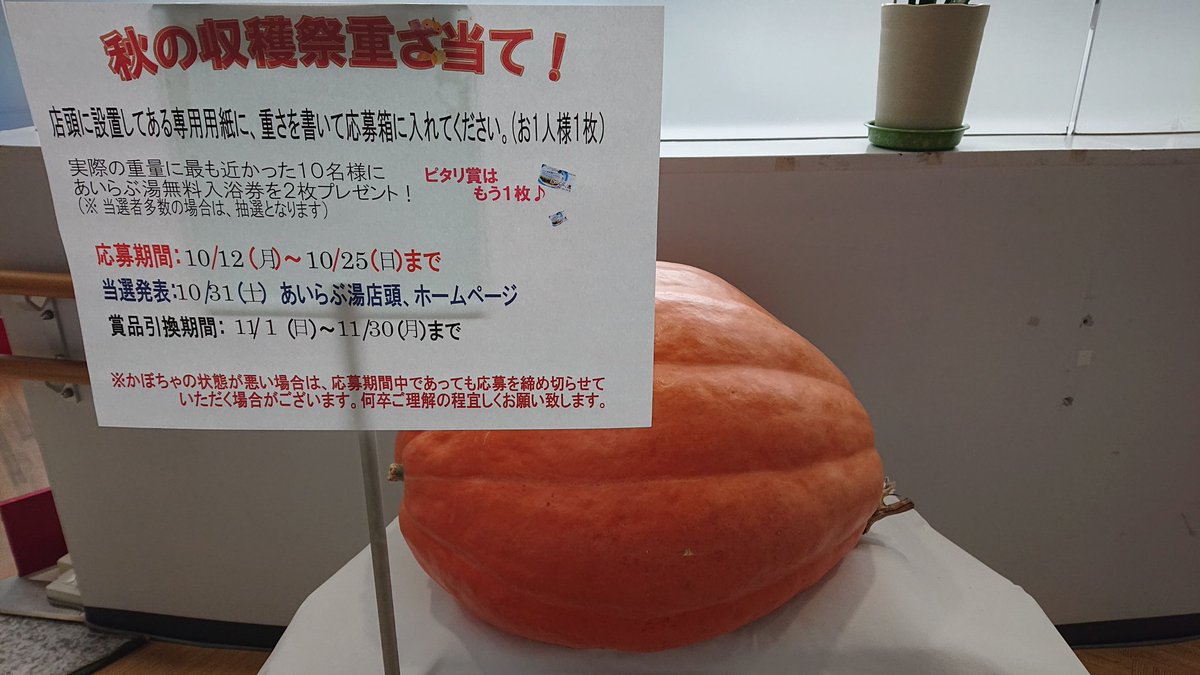 秋の収穫祭重さ当て！
店頭に設置してある専用用紙に、重さを書いて応募箱に入れてください。（お1人様1枚）
実際の重量に最も近かった１０名様に
あいらぶ湯無料入浴券を２枚プレゼント！
（※ 当選者多数の場合は、抽選となります）
ピタリ賞は
もう１枚♪
応募期間：10/12（月）～10/25（日）まで
当選発表：10/31（土） あいらぶ湯店頭、ホームページ
賞品引換期間： 11/1（日）～11/30（月）まで
※かぼちゃの状態が悪い場合は、応募期間中であっても応募を締め切らせて
いただく場合がございます。何卒ご理解の程宜しくお願い致します。